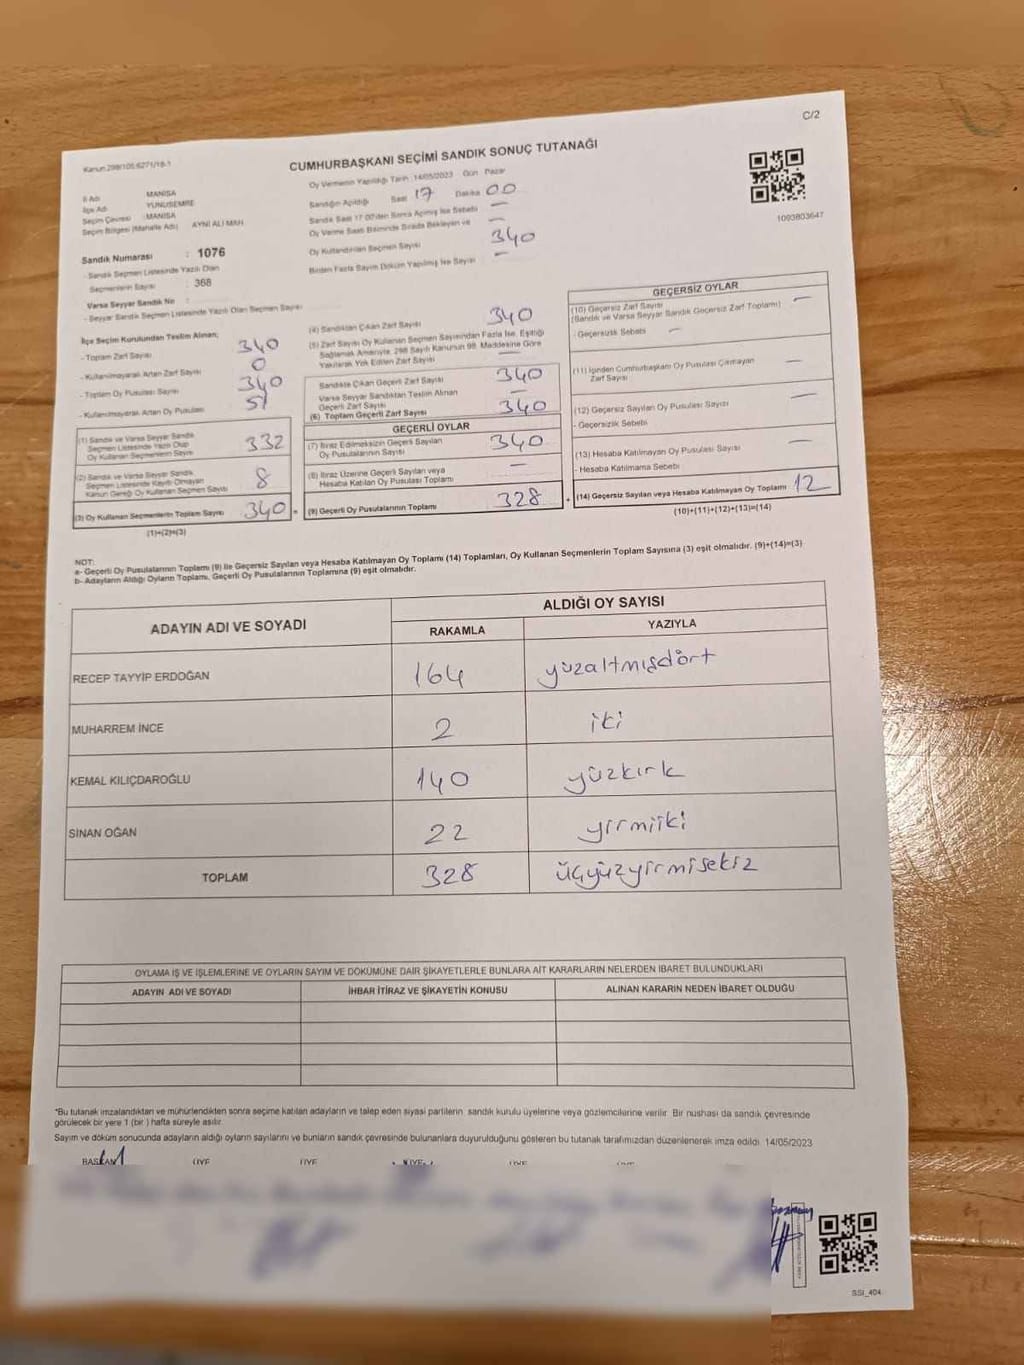 C/2
Kanun 298/105,6271/18-1
CUMHURBAŞKANI SEÇİMİ SANDIK SONUÇ TUTANAĞI
1093803647
İl Adı MANİSA
İlçe Adı YUNUSEMRE
Seçim Çevresi : MANİSA
Seçim Bölgesi (Mahalle Adı) AYNİ ALİ MAH
Sandık Numarası : 1076
- Sandık Seçmen Listesinde Yazılı Olan
Seçmenlerin Sayısı : 368
Varsa Seyyar Sandık No :
- Seyyar Sandık Seçmen Listesinde Yazılı Olan Seçmen Sayısı :
Oy Vermenin Yapıldığı Tarih 14/05/2023 Gün Pazar
Sandığın Açıldığı Saat 17 Dakika 00
Sandık Saat 17 00'den Sonra Açılmış İse Sebebi —
Oy Verme Saati Bitiminde Sırada Bekleyen ve —
Oy Kullandırılan Seçmen Sayısı 340
Birden Fazla Sayım Döküm Yapılmış İse Sayısı —
İlçe Seçim Kurulundan Teslim Alınan;
- Toplam Zarf Sayısı 340
- Kullanılmayarak Artan Zarf Sayısı 0
- Toplam Oy Pusulası Sayısı 340
- Kullanılmayarak Artan Oy Pusulası 51
(1) Sandık ve Varsa Seyyar Sandık
Seçmen Listesinde Yazılı Olup
Oy Kullanan Seçmenlerin Sayısı 332
(2) Sandık ve Varsa Seyyar Sandık
Seçmen Listesinde Kayıtlı Olmayan
Kanun Gereği Oy Kullanan Seçmen Sayısı 8
(3) Oy Kullanan Seçmenlerin Toplam Sayısı 340 =
(1)+(2)=(3)
(4) Sandıktan Çıkan Zarf Sayısı 340
(5) Zarf Sayısı Oy Kullanan Seçmen Sayısından Fazla İse, Eşitliği
Sağlamak Amacıyla, 298 Sayılı Kanunun 98. Maddesine Göre
Yakılarak Yok Edilen Zarf Sayısı —
Sandıkta Çıkan Geçerli Zarf Sayısı 340
Varsa Seyyar Sandıktan Teslim Alınan
Geçerli Zarf Sayısı —
(6) Toplam Geçerli Zarf Sayısı 340
GEÇERLİ OYLAR
(7) İtiraz Edilmeksizin Geçerli Sayılan
Oy Pusulalarının Sayısı 340
(8) İtiraz Üzerine Geçerli Sayılan veya
Hesaba Katılan Oy Pusulası Toplamı —
(9) Geçerli Oy Pusulalarının Toplamı 328 +
GEÇERSİZ OYLAR
(10) Geçersiz Zarf Sayısı
(Sandık ve Varsa Seyyar Sandık Geçersiz Zarf Toplamı) —
- Geçersizlik Sebebi —
(11) İçinden Cumhurbaşkanı Oy Pusulası Çıkmayan
Zarf Sayısı —
(12) Geçersiz Sayılan Oy Pusulası Sayısı —
- Geçersizlik Sebebi
(13) Hesaba Katılmayan Oy Pusulası Sayısı —
- Hesaba Katılmama Sebebi
(14) Geçersiz Sayılan veya Hesaba Katılmayan Oy Toplamı 12
(10)+(11)+(12)+(13)=(14)
NOT:
a- Geçerli Oy Pusulalarının Toplamı (9) ile Geçersiz Sayılan veya Hesaba Katılmayan Oy Toplamı (14) Toplamları, Oy Kullanan Seçmenlerin Toplam Sayısına (3) eşit olmalıdır. (9)+(14)=(3)
b- Adayların Aldığı Oyların Toplamı, Geçerli Oy Pusulalarının Toplamına (9) eşit olmalıdır.
ADAYIN ADI VE SOYADI ALDIĞI OY SAYISI
RAKAMLA YAZIYLA
RECEP TAYYİP ERDOĞAN 164 yüzaltmışdört
MUHARREM İNCE 2 iki
KEMAL KILIÇDAROĞLU 140 yüzkırk
SİNAN OĞAN 22 yirmiiki
TOPLAM 328 üçyüzyirmisekiz
OYLAMA İŞ VE İŞLEMLERİNE VE OYLARIN SAYIM VE DÖKÜMÜNE DAİR ŞİKAYETLERLE BUNLARA AİT KARARLARIN NELERDEN İBARET BULUNDUKLARI
ADAYIN ADI VE SOYADI İHBAR İTİRAZ VE ŞİKAYETİN KONUSU ALINAN KARARIN NEDEN İBARET OLDUĞU
*Bu tutanak imzalandıktan ve mühürlendikten sonra seçime katılan adayların ve talep eden siyasi partilerin sandık kurulu üyelerine veya gözlemcilerine verilir. Bir nushası da sandık çevresinde
görülecek bir yere 1 (bir ) hafta süreyle asılır.
Sayım ve döküm sonucunda adayların aldığı oyların sayılarını ve bunların sandık çevresinde bulunanlara duyurulduğunu gösteren bu tutanak tarafımızdan düzenlenerek imza edildi. 14/05/2023
BAŞKAN ÜYE ÜYE ÜYE ÜYE
SSI_404